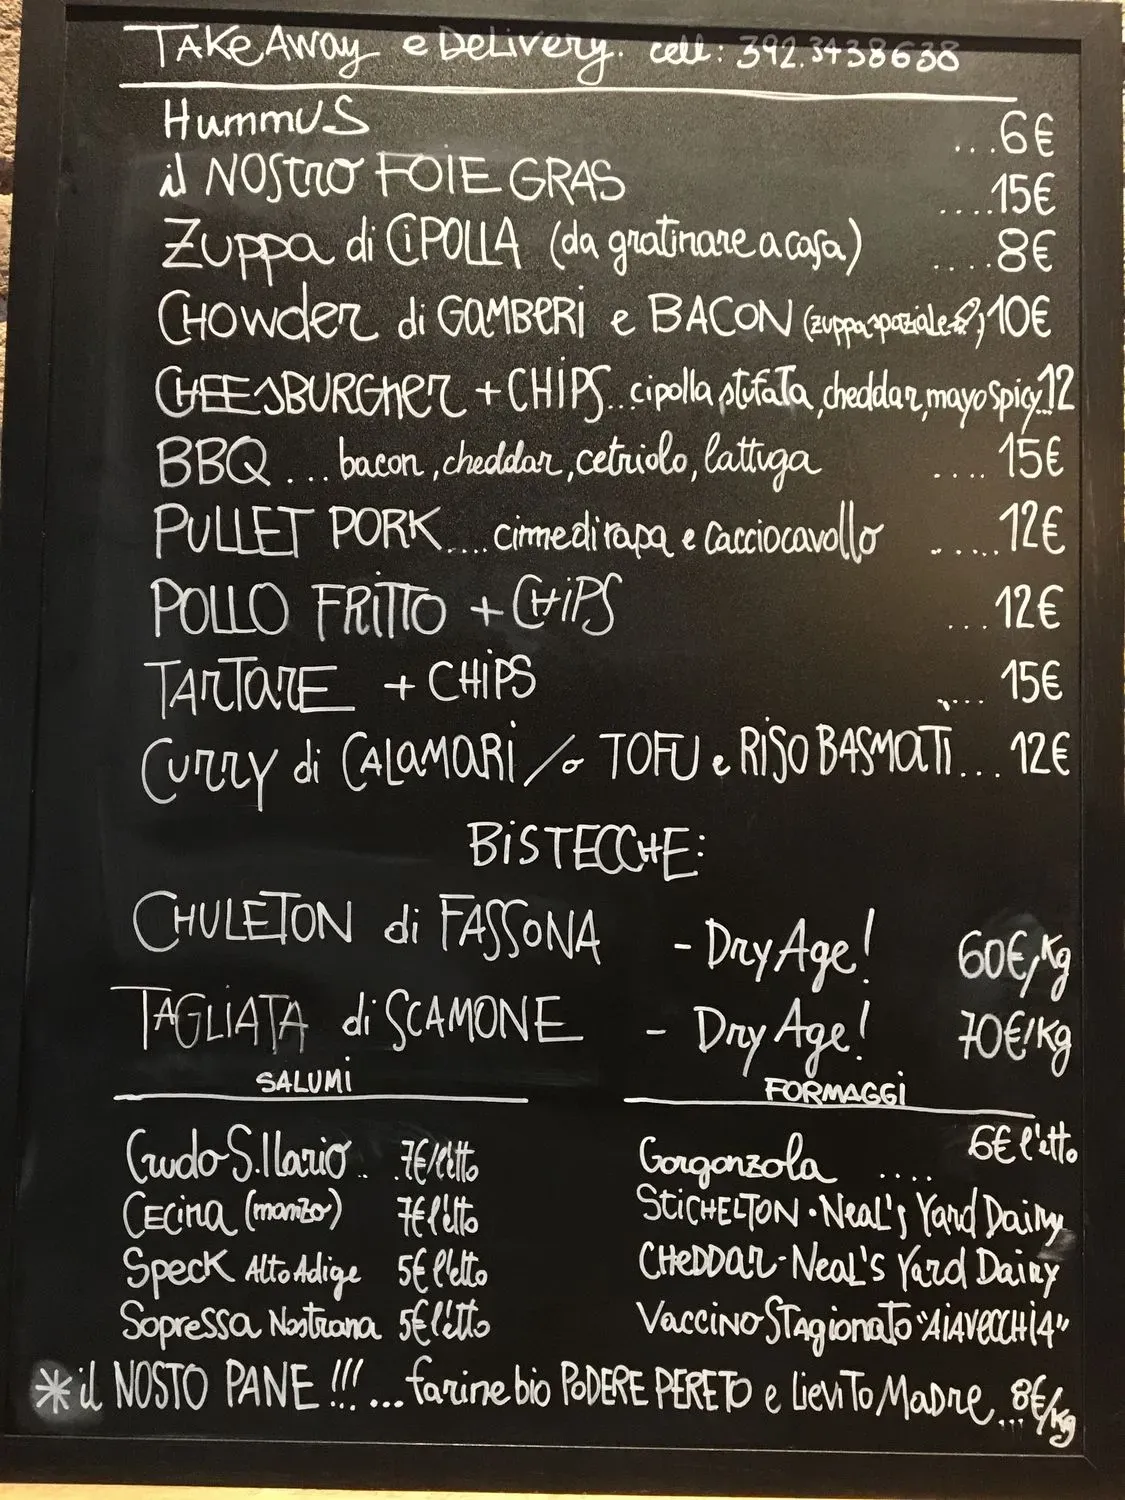 TAKE AWAY e DELIVERY. cell: 392.3438638
HummUS ...6€
il NOSTRO FOIE GRAS ....15€
ZUPPA di CIPOLLA (da gratinare a casa) ....8€
CHOWDER di GAMBERI e BACON (zuppa spaziale) 10€
CHEESBURGHER + CHIPS...cipolla stufata, cheddar, mayo spicy..12
BBQ ....bacon, cheddar, cetriolo, lattuga ....15€
PULLET PORK....cime di rapa e cacciocavallo .....12€
POLLO FRITTO + CHIPS ...12€
TARTARE + CHIPS ....15€
CURRY di CALAMARI / o TOFU e RISO BASMATI... 12€
BISTECCHE:
CHULETON di FASSONA - Dry Age! 60€/Kg
TAGLIATA di SCAMONE - Dry Age! 70€/Kg
SALUMI
Crudo S.Ilario .. 7€/l'etto
Cecina (manzo) 7€ l'etto
Speck Alto Adige 5€ l'etto
Sopressa Nostrana 5€ l'etto
FORMAGGI
Gorgonzola .... 6€ l'etto
STICHELTON · NEAL'S Yard Dairy
CHEDDAR - NEAL'S Yard Dairy
VACCINO STAGIONATO "AIAVECCHIA"
* il NOSTO PANE !!! ... farine bio PODERE PERETO e LIEVITO MADRE ... 8€/Kg